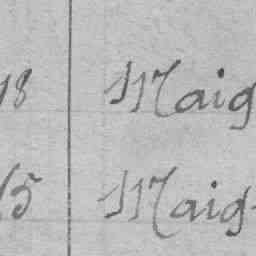 18 Maig
15 Maig